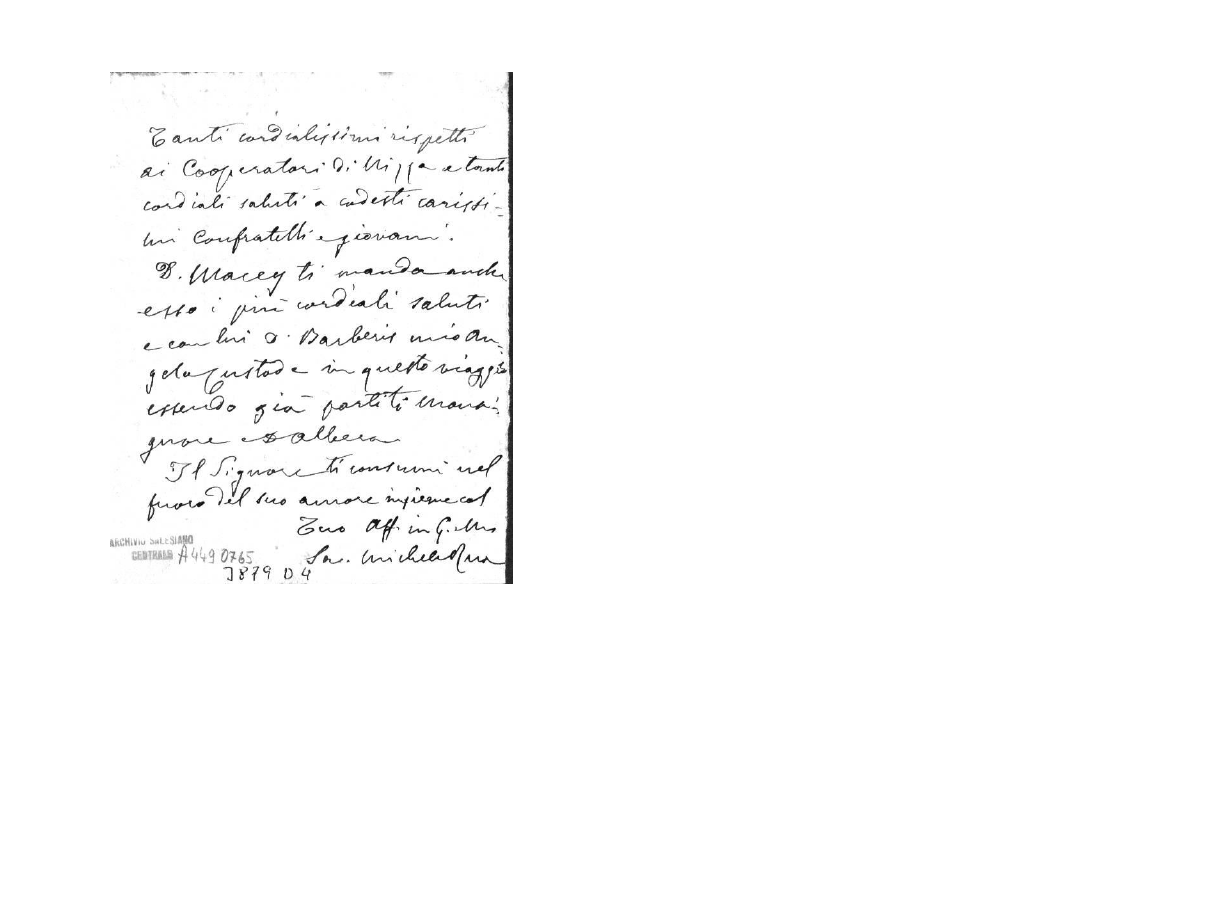 Tanti cordialissimi rispetti
ai Cooperatori di Nizza e tanti
cordiali saluti a codesti carissi-
mi Confratelli e giovani.
D. Macey ti manda anche
esso i più cordiali saluti
e con lui D. Barberis mio An-
gelo Custode in questo viaggio
essendo già partiti Monsi-
gnore e D Albera
Il Signore ti consumi nel
fuoco del suo amore insieme col
Tuo Aff. in G. e M.
Sac. Michele Rua
ARCHIVIO SALESIANO
CENTRALE A449 0765
3879 D 4